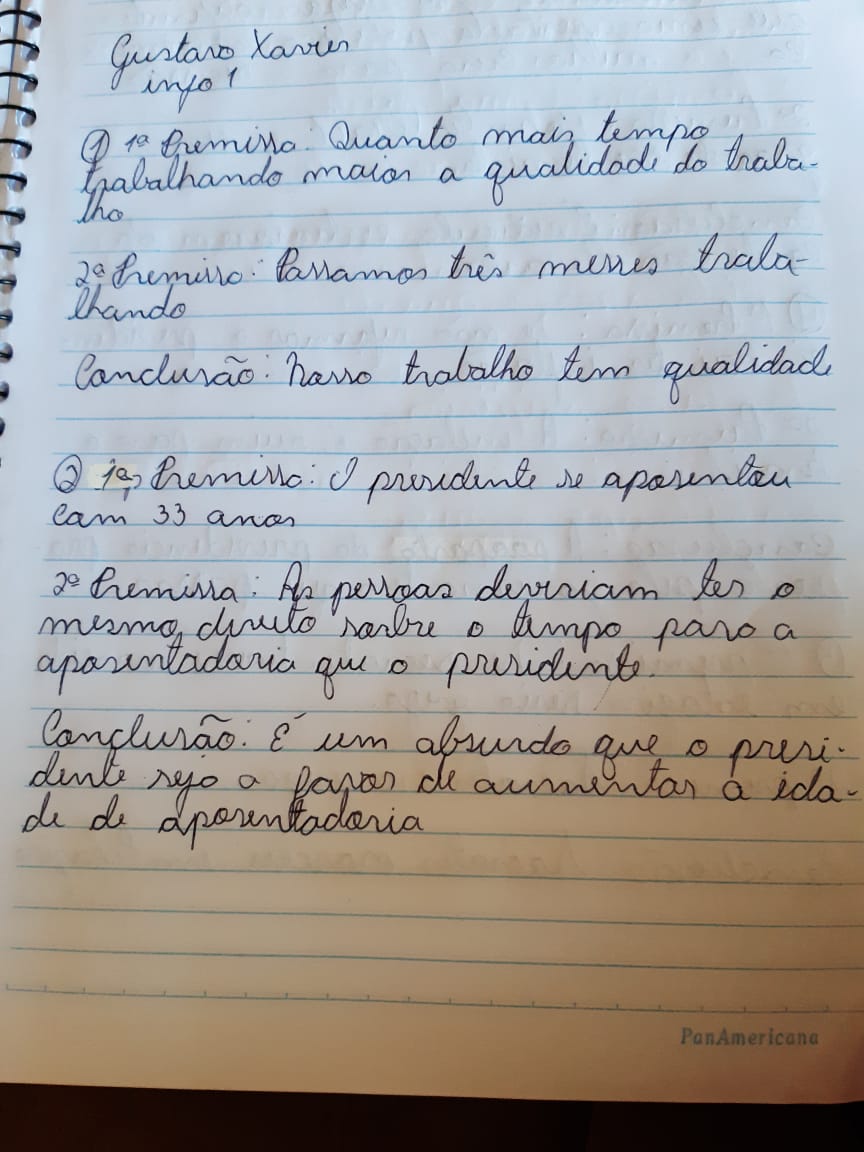 Gustavo Xavier
info 1
① 1ª Premissa: Quanto mais tempo
trabalhando maior a qualidade do traba-
lho
2ª Premissa: Passamos três messes traba-
lhando
Conclusão: Nosso trabalho tem qualidade
② 1ª, Premissa: O presidente se aposentou
com 33 anos
2ª Premissa: As pessoas deveriam ter o
mesmo direito sorbre o tempo para a
aposentadoria que o presidente.
Conclusão: É um absurdo que o presi-
dente seja a favor de aumentar a ida-
de de aposentadoria
PanAmericana